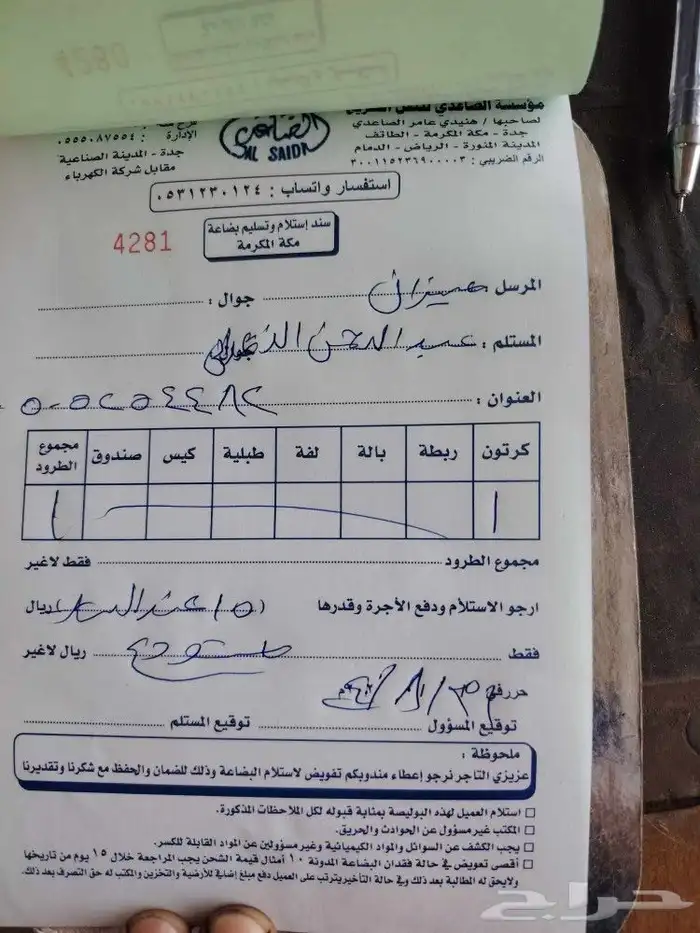 مؤسسة الصاعدي للنقل السريع
لصاحبها / هنيدي عامر الصاعدي
جدة - مكة المكرمة - الطائف
المدينة المنورة - الرياض - الدمام
الرقم الضريبي : ٣٠٠١١٥٢٣٦٩٠٠٠٠٣
الصاعدي
AL SAIDI
الإدارة : ٠٥٥٥٠٨٧٥٥٤
جدة - المدينة الصناعية
مقابل شركة الكهرباء
استفسار واتساب : ٠٥٣١٢٣٠١٢٤
سند إستلام وتسليم بضاعة
مكة المكرمة
4281
المرسل جوال :
المستلم : عبد الرحمن جوال
العنوان : ٠٥٠٥٢٥٤٤٨٢
كرتون ربطة بالة لفة طبلية كيس صندوق مجموع الطرود
١ ١
مجموع الطرود فقط لاغير
ارجو الاستلأم ودفع الأجرة وقدرها ( ١٥ ) ريال
فقط مستودع ريال لاغير
حرر في
توقيع المسؤول توقيع المستلم
ملحوظة :
عزيزي التاجر نرجو إعطاء مندوبكم تفويض لاستلام البضاعة وذلك للضمان والحفظ مع شكرنا وتقديرنا
استلام العميل لهذه البوليصة بمثابة قبوله لكل الملاحظات المذكورة.
المكتب غير مسؤول عن الحوادث والحريق.
يجب الكشف عن السوائل والمواد الكيميائية وغير مسؤولين عن المواد القابلة للكسر.
أقصى تعويض في حالة فقدان البضاعة المدونة ١٠ أمثال قيمة الشحن يجب المراجعة خلال ١٥ يوم من تاريخها
ولايحق له المطالبة بعد ذلك وفي حالة التأخير يترتب على العميل دفع مبلغ إضافي للأرضية والتخزين والمكتب له حق التصرف بعد ذلك.
حراج